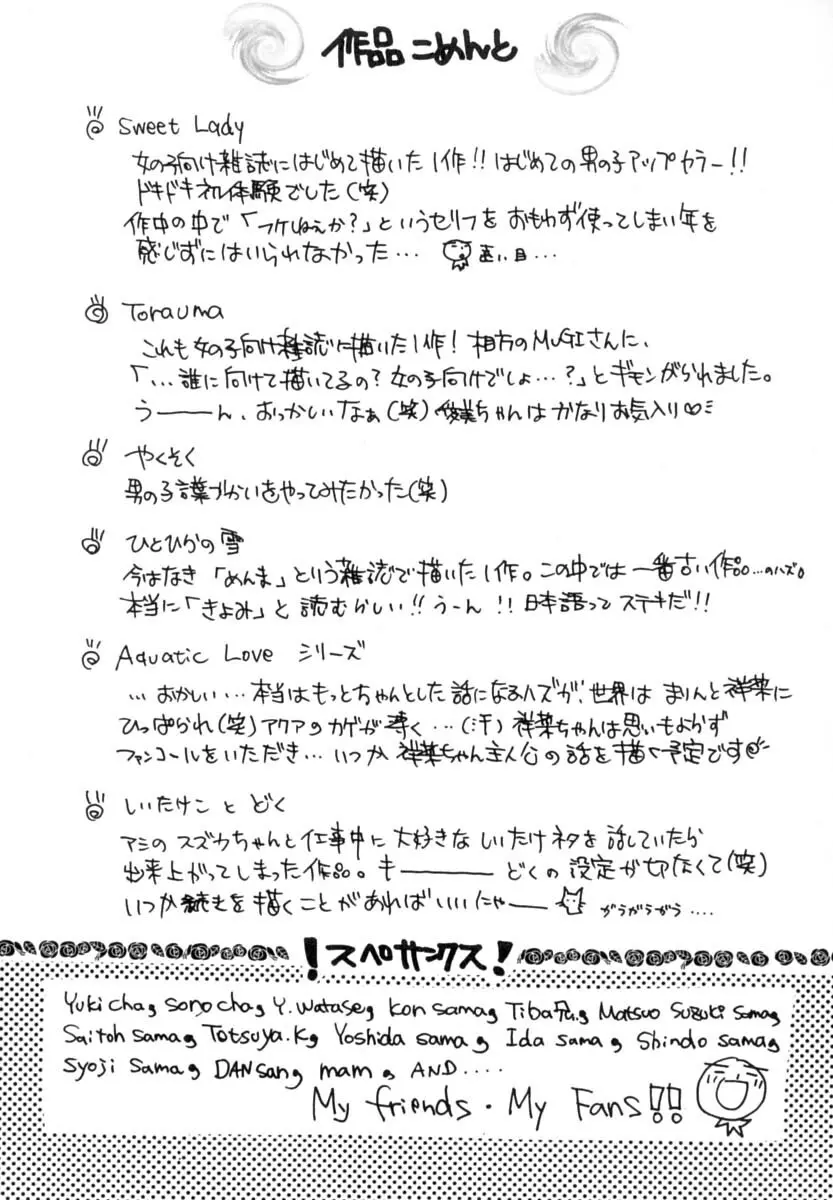 作品こめんと
Sweet Lady
女の子向け雑誌にはじめて描いた1作!! はじめての男の子アップカラー!!
ドキドキネル体験でした(笑)
作中の中で「フケねぇか?」というセリフを おもわず使ってしまい年を
感じずにはいられなかった… 遠い目…
Torauma
これも女の子向け雑誌に描いた1作! 相方のMUGIさんに、
「…誰に向けて描いてるの? 女の子向けでしょ…?」とギモンがられました。
うーーん、おっかしいなぁ(笑) ちゃんは かなりお気入り♡
やくそく
男の子言葉づかいをやってみたかった(笑)
ひとひらの雪
今はなき「めんま」という雑誌で描いた1作。この中では 一番古い作品…のハズ。
本当に「きよみ」と 読むらしい!! うーん!! 日本語って ステキだ!!
Aquatic Love シリーズ
… おかしい… 本当はもっとちゃんとした話になるハズが、世界は まりんと祥菜に
ひっぱられ(笑)アクアのカゲが薄く…(汗) 祥菜ちゃんは思いもよらず
ファンコールをいただき… いつか 祥菜ちゃん主人公の話を描く予定です
しいたけこ と どく
アシの スズカちゃんと仕事中に 大好きな しいたけネタを 話していたら
出来上がってしまった作品。キーーー どくの設定が切なくて(笑)
いつか続きを描くことがあればいいにゃー がうがうがう….
!スペサンクス!
Yukicha, sonocha, Y.watase, kon sama, Tiba兄, Matsuo Suzuki sama,
Saitoh sama, Totsuya.K, Yoshida sama, Ida sama, Shindo sama,
Syoji sama, DANsan, mam, AND....
My friends・My Fans!!